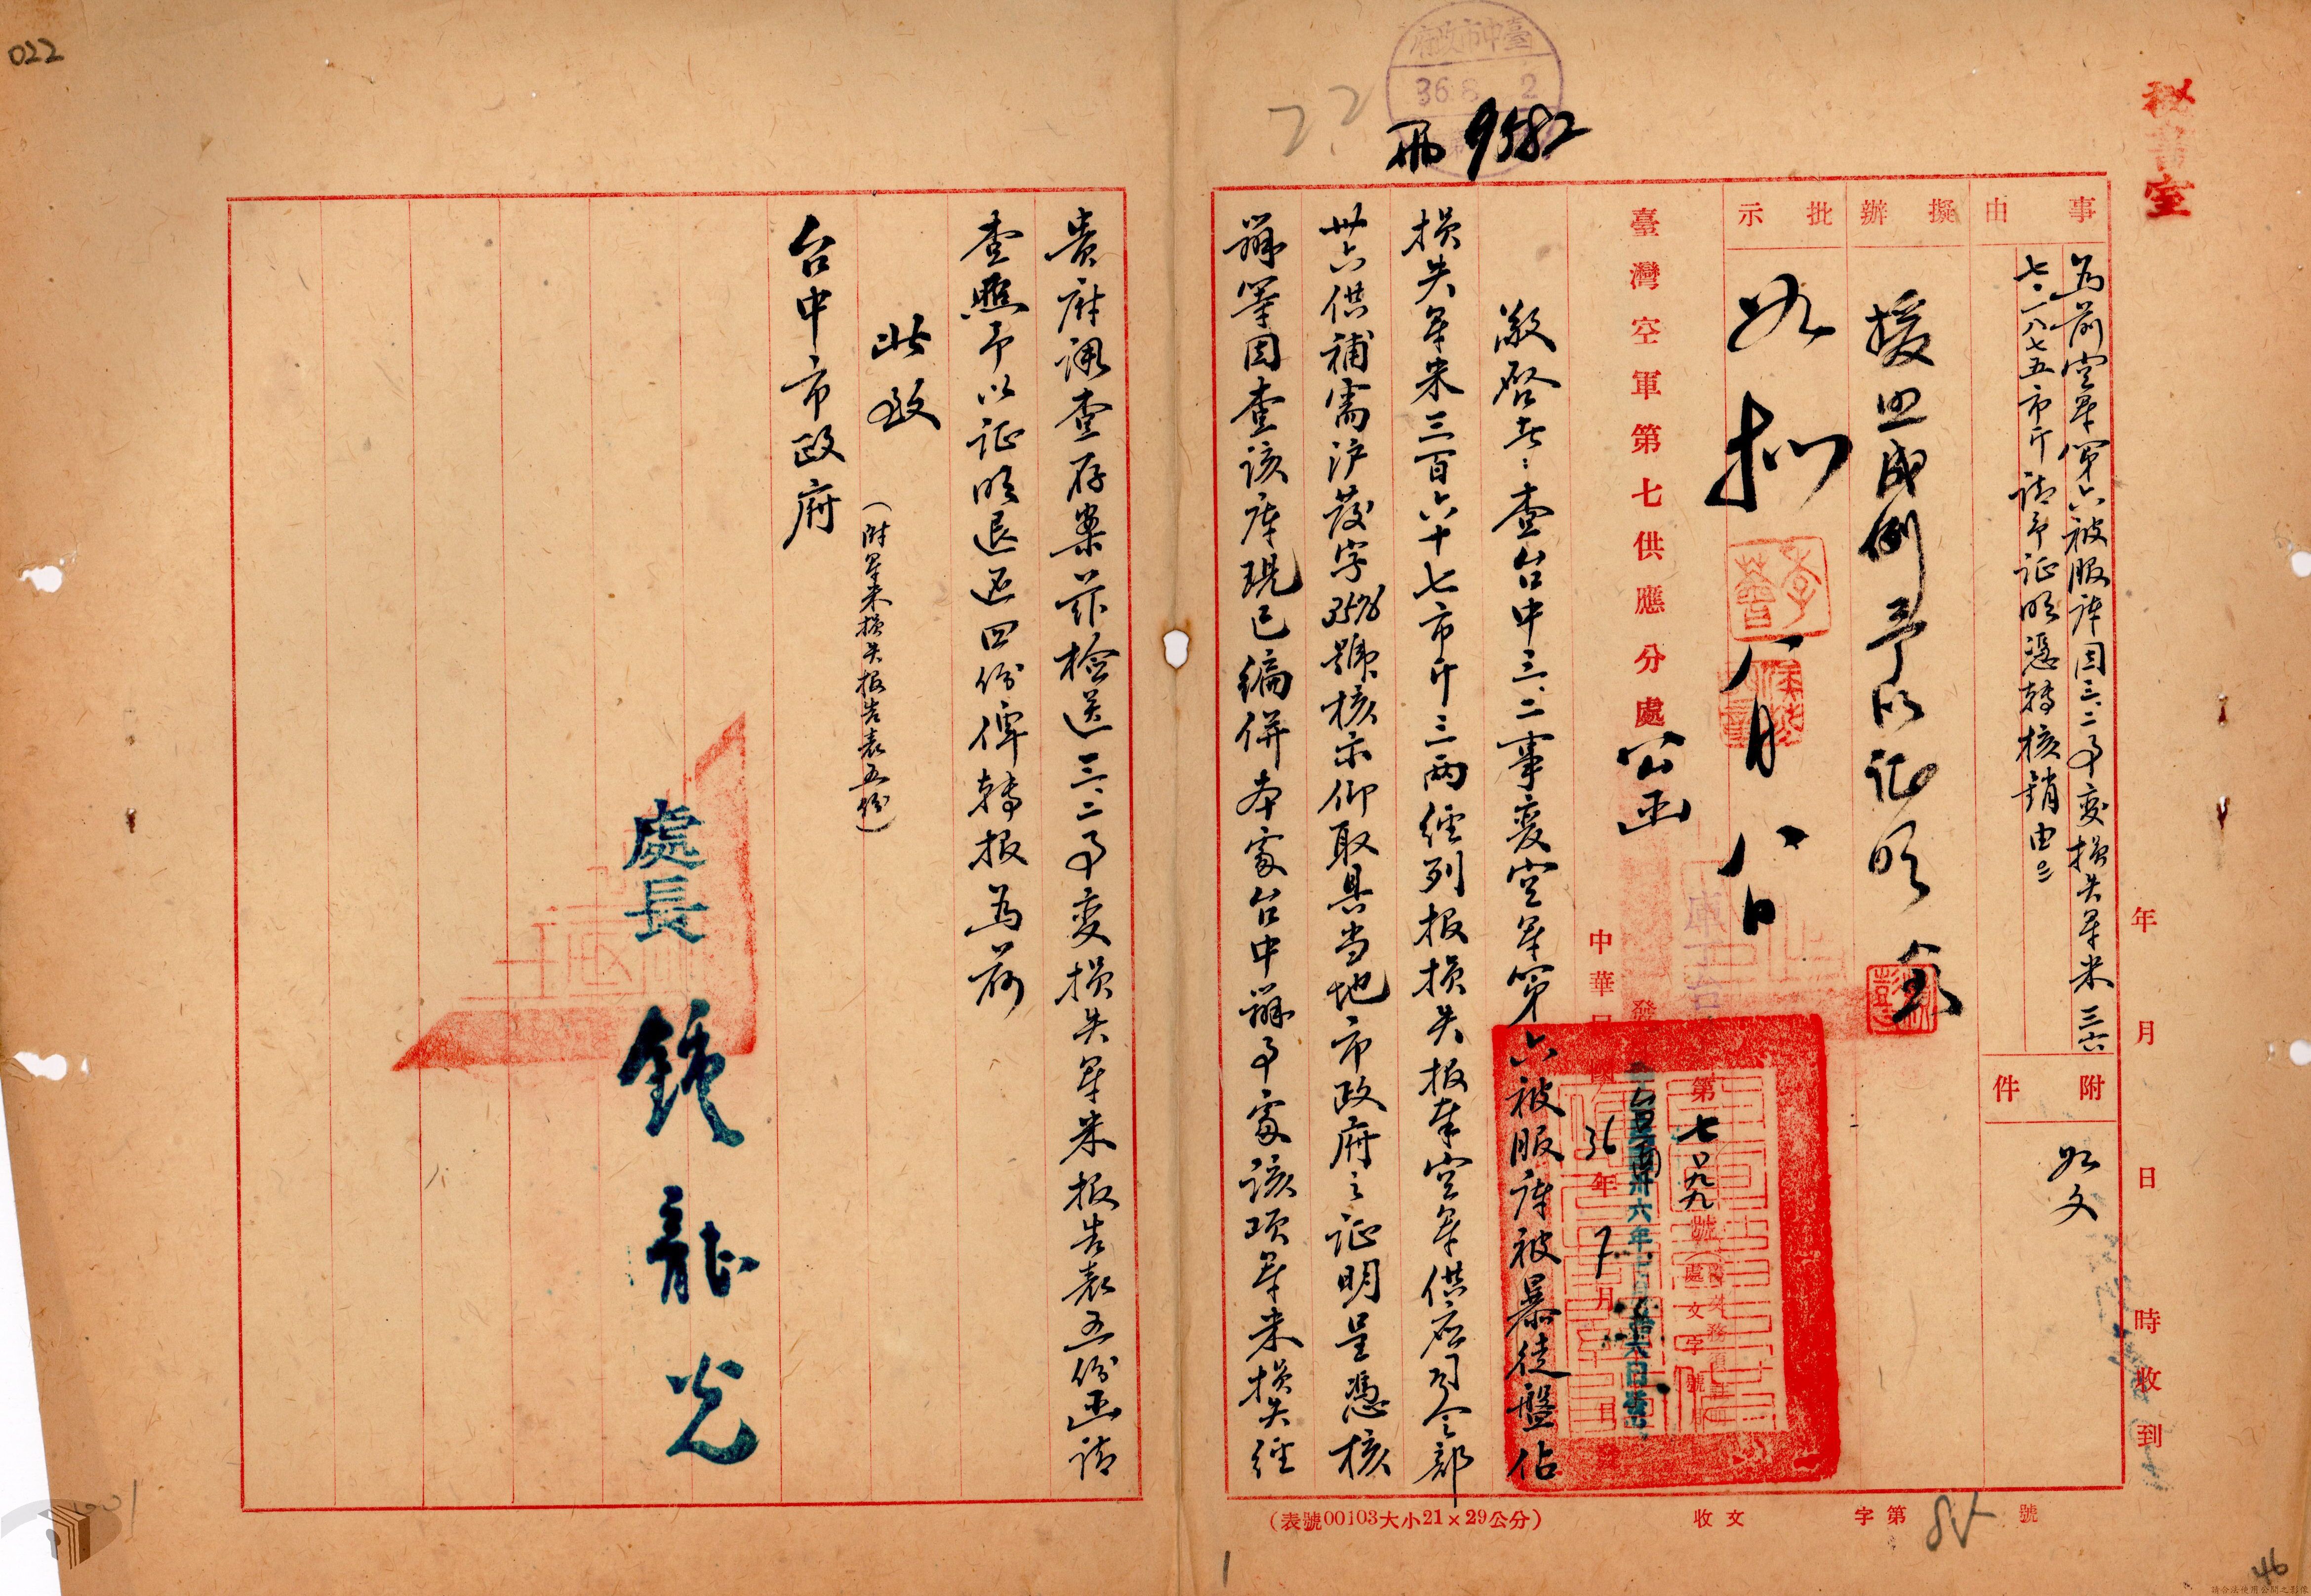 022
臺中市政府
36.8.2
22
冊 9582
秘書室
年 月 日 時收到
事由
為前空軍第六被服庫因三、二事變損失軍米三六
七、一八七五市斤請予証明憑轉核銷由
附件
如文
擬辦
援照成例予以証明
批示
如擬
八月八日
臺灣空軍第七供應分處公函
中華民國36年7月 日
發
第七〇九九號
敬啓者：查台中三、二事變空軍第六被服庫被暴徒盤佔
損失軍米三百六十七市斤三兩經列報損失报奉空軍供应司令部
卅六供補需沪發字3576號核示仰取具当地市政府之証明呈憑核
辦等因查該庫現已編併本處台中辦事處該項軍米損失經
貴府調查存案茲检送三、二事変損失軍米报告表五份函請
查照予以証明退还四份俾轉报為荷
此致
（附軍米損失报告表五份）
台中市政府
處長 鍾龍光
（表號00103大小21×29公分）
收文 字第 號
46